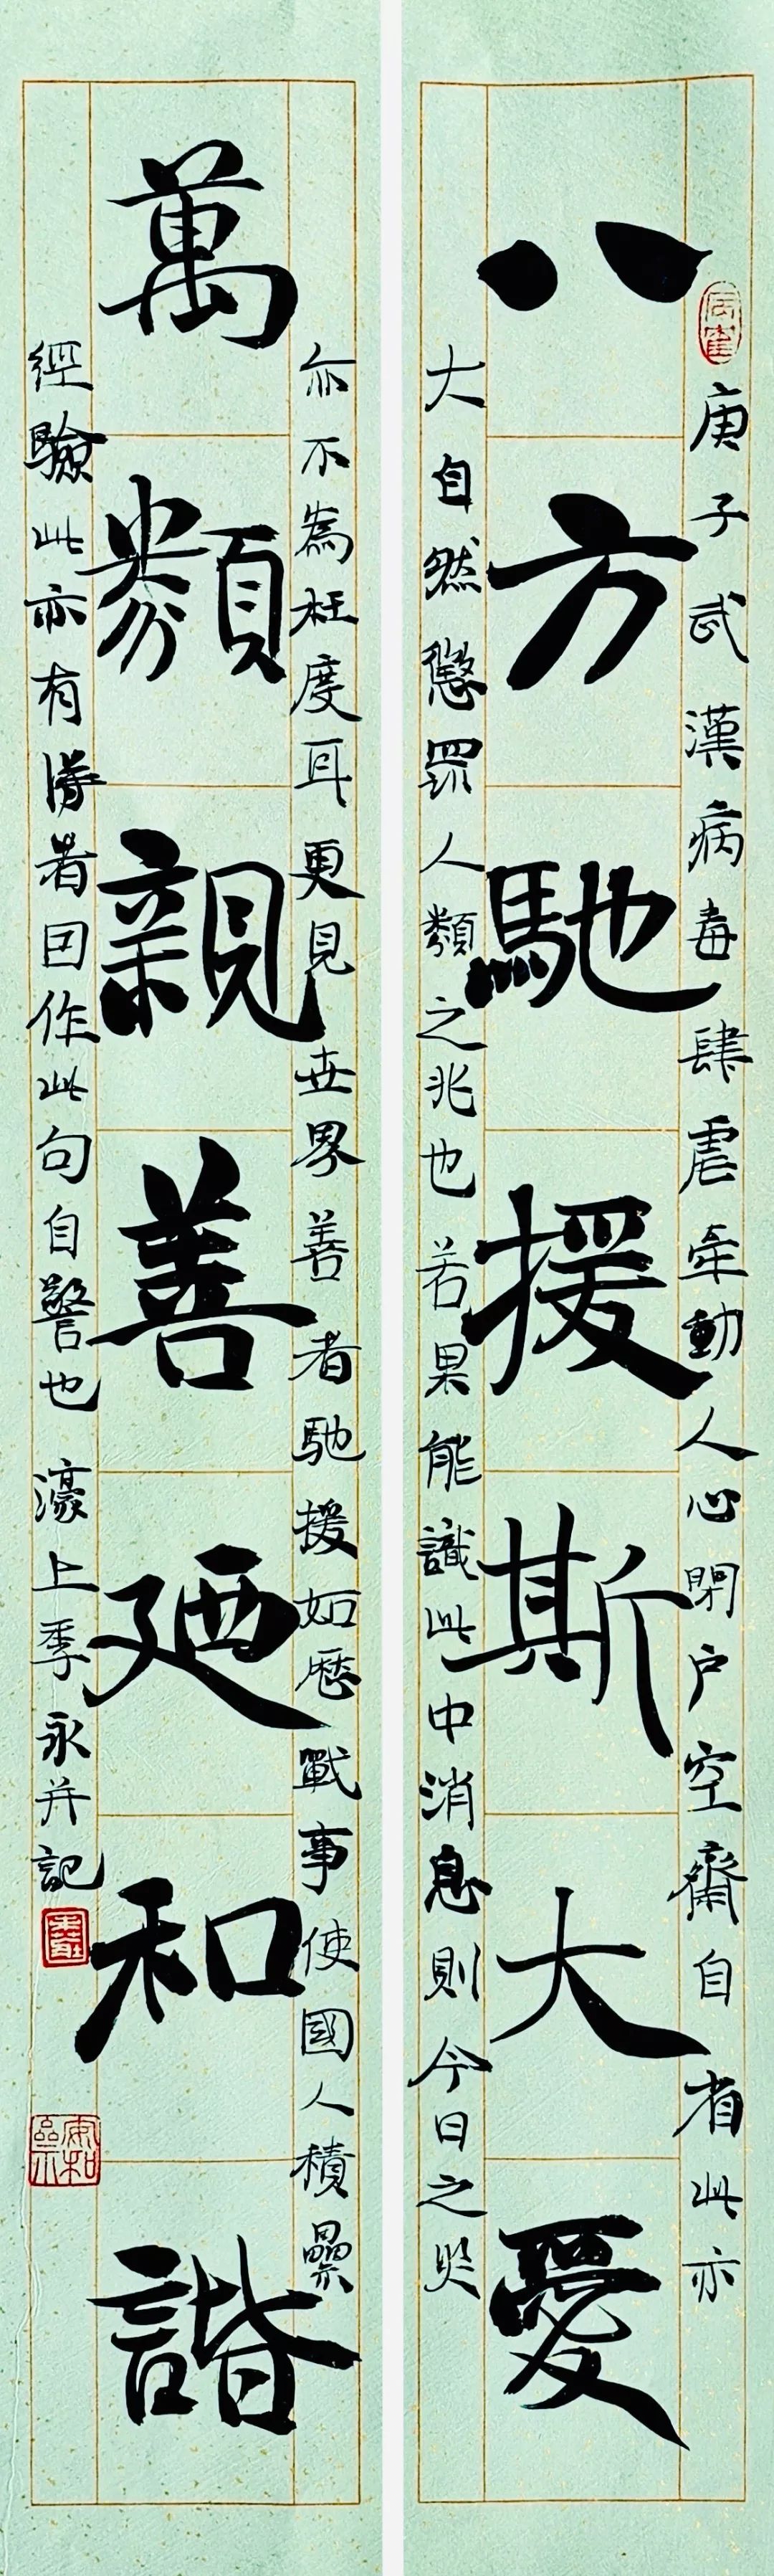 庚子武漢病毒肆虐牽動人心閉户空齋自省此亦
八方馳援斯大愛
大自然懲人類之兆也若果能識此中消息則今日之
亦不為枉度耳更見世界善者馳援如歷戰事使國人積纍
萬類親善廼和諧
經驗此亦有者因作此句自警也濠上季永并記